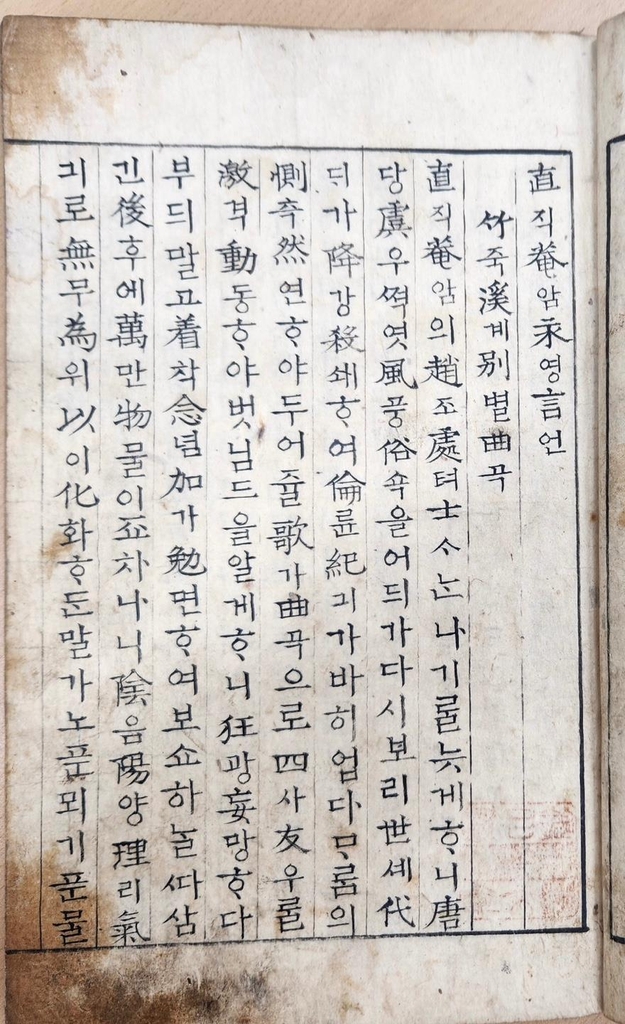 直직菴암永영言언
竹죽溪계別별曲곡
直직菴암의趙조處텨士ᄉᆞᄂᆞᆫ나기ᄅᆞᆯ늣게ᄒᆞ니唐
당虞우쩍엿風풍俗쇽을어듸가다시보리世셰代
듸가降강殺쇄ᄒᆞ여倫륜紀긔가바히업다ᄆᆞᄅᆞᆷ의
惻측然연ᄒᆞ야두어줄歌가曲곡으로四사友우ᄅᆞᆯ
激격動동ᄒᆞ야벗님드을알게ᄒᆞ니狂광妄망ᄒᆞ다
부듸말고着착念념加가勉면ᄒᆞ여보쇼하ᄂᆞᆯᄯᅡ삼
긴後후에萬만物물이죠차나니陰음陽양理리氣
긔로無무為위以이化화ᄒᆞ든말가노푼뫼기푼물